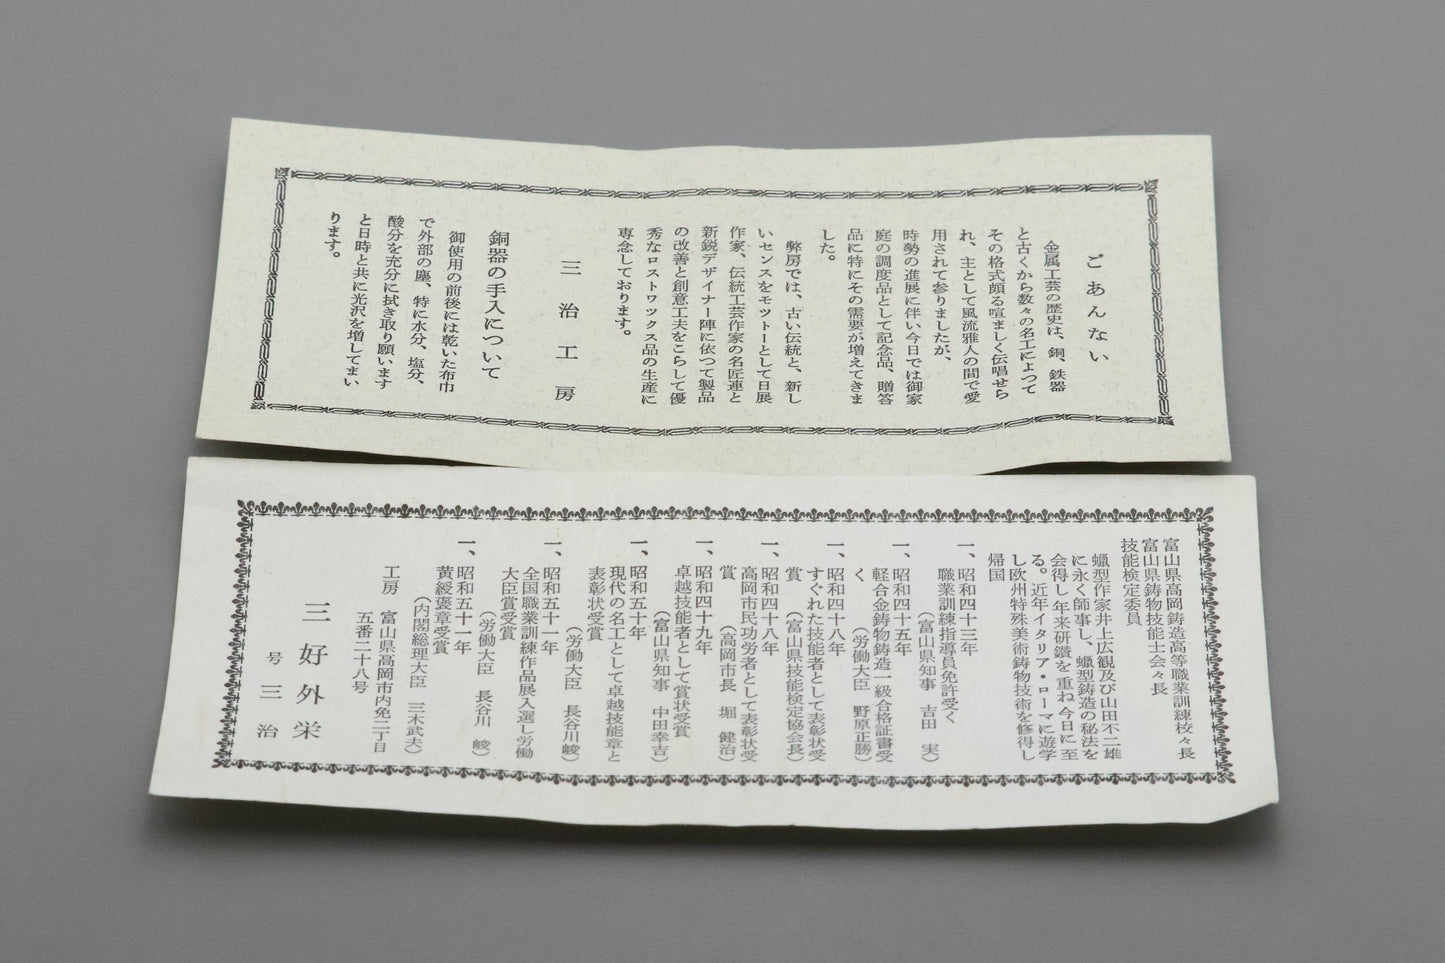 ごあんない
金属工芸の歴史は、銅、鉄器
と古くから数々の名工によつて
その格式頗る喧ましく伝唱せら
れ、主として風流雅人の間で愛
用されて参りましたが、
時勢の進展に伴い今日では御家
庭の調度品として記念品、贈答
品に特にその需要が増えてきま
した。
弊房では、古い伝統と、新し
いセンスをモツトーとして日展
作家、伝統工芸作家の名匠連と
新鋭デザイナー陣に依つて製品
の改善と創意工夫をこらして優
秀なロストワックス品の生産に
専念しております。
三治工房
銅器の手入について
御使用の前後には乾いた布巾
で外部の塵、特に水分、塩分、
酸分を充分に拭き取り願います
と日時と共に光沢を増してまい
ります。
富山県高岡鋳造高等職業訓練校々長
富山県鋳物技能士会々長
技能検定委員
蠟型作家井上広観及び山田不二雄
に永く師事し、蠟型鋳造の秘法を
会得し年来研鑽を重ね今日に至
る。近年イタリア・ローマに遊学
し欧州特殊美術鋳物技術を修得し
帰国
一、昭和四十三年
職業訓練指導員免許受く
（富山県知事　吉田　実）
一、昭和四十五年
軽合金鋳物鋳造一級合格証書受
く　（労働大臣　野原正勝）
一、昭和四十八年
すぐれた技能者として表彰状受
賞　（富山県技能検定協会長）
一、昭和四十八年
高岡市民功労者として表彰状受
賞　（高岡市長　堀　健治）
一、昭和四十九年
卓越技能者として賞状受賞
（富山県知事　中田幸吉）
一、昭和五十年
現代の名工として卓越技能章と
表彰状受賞
（労働大臣　長谷川峻）
一、昭和五十一年
全国職業訓練作品展入選し労働
大臣賞受賞
（労働大臣　長谷川　峻）
一、昭和五十一年
黄綬褒章受賞
（内閣総理大臣　三木武夫）
工房　富山県高岡市内免二丁目
五番二十八号
三好外栄
号　三治